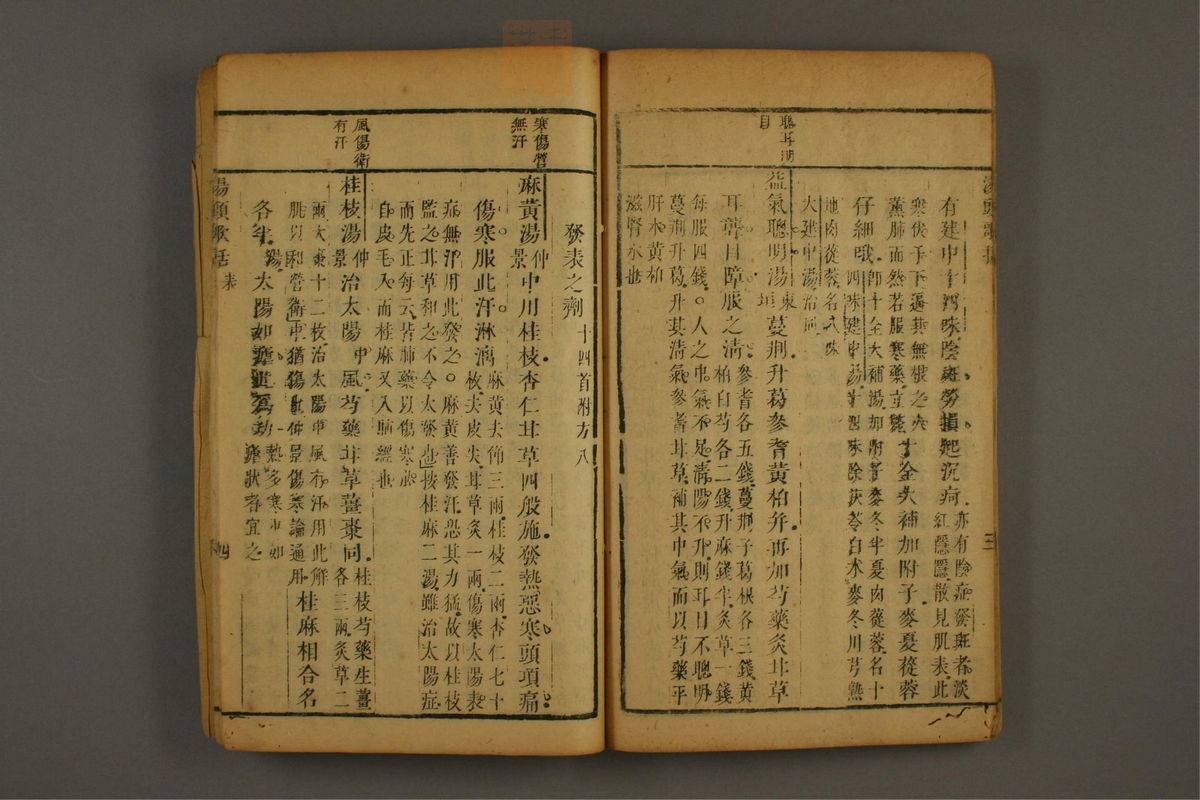 湯頭歌括
三
有建中十四味陰斑勞損起沉疴亦有陰症發斑者淡
紅隱隱散見肌表此
寒伏于下逼其無根之火
薰肺而然若服寒藥立斃十全大補加附子麥夏蓯蓉
仔細哦即十全大補湯加附子麥冬半夏肉蓯蓉名十
四味建中湯十四味除茯苓白朮麥冬川芎熟
地肉蓯蓉名八味
大建中湯治同
聰耳明
目
益氣聰明湯東垣蔓荊升葛參耆黃柏并再加芍藥炙甘草
耳聾目障服之清參耆各五錢蔓荊子葛根各三錢黃
柏白芍各二錢升麻錢半炙草一錢
每服四錢。人之中氣不足清陽不升則耳目不聰明
蔓荊升葛升其清氣參耆甘草補其中氣而以芍藥平
肝木黃柏
滋腎水也
發表之劑十四首附方八
寒傷營
無汗
麻黃湯仲景中用桂枝杏仁甘草四般施發熱惡寒頭項痛
傷寒服此汗淋漓麻黃去節三兩桂枝二兩杏仁七十
枚去皮尖甘草炙一兩傷寒太陽表
症無汗用此發之。麻黃善發汗恐其力猛故以桂枝
監之甘草和之不令太發也按桂麻二湯雖治太陽症
而先正每云皆肺藥以傷寒必
自皮毛入而桂麻又入肺經也
風傷衛
有汗
桂枝湯仲景治太陽中風芍藥甘草薑棗同桂枝芍藥生薑
各三兩炙草二
兩大棗十二枚治太陽中風有汗用此解
肌以和營衛中猶傷也仲景傷寒論通用桂麻相合名
各半湯太陽如瘧此為功熱多寒少如
瘧狀者宜之
湯頭歌括
表
四